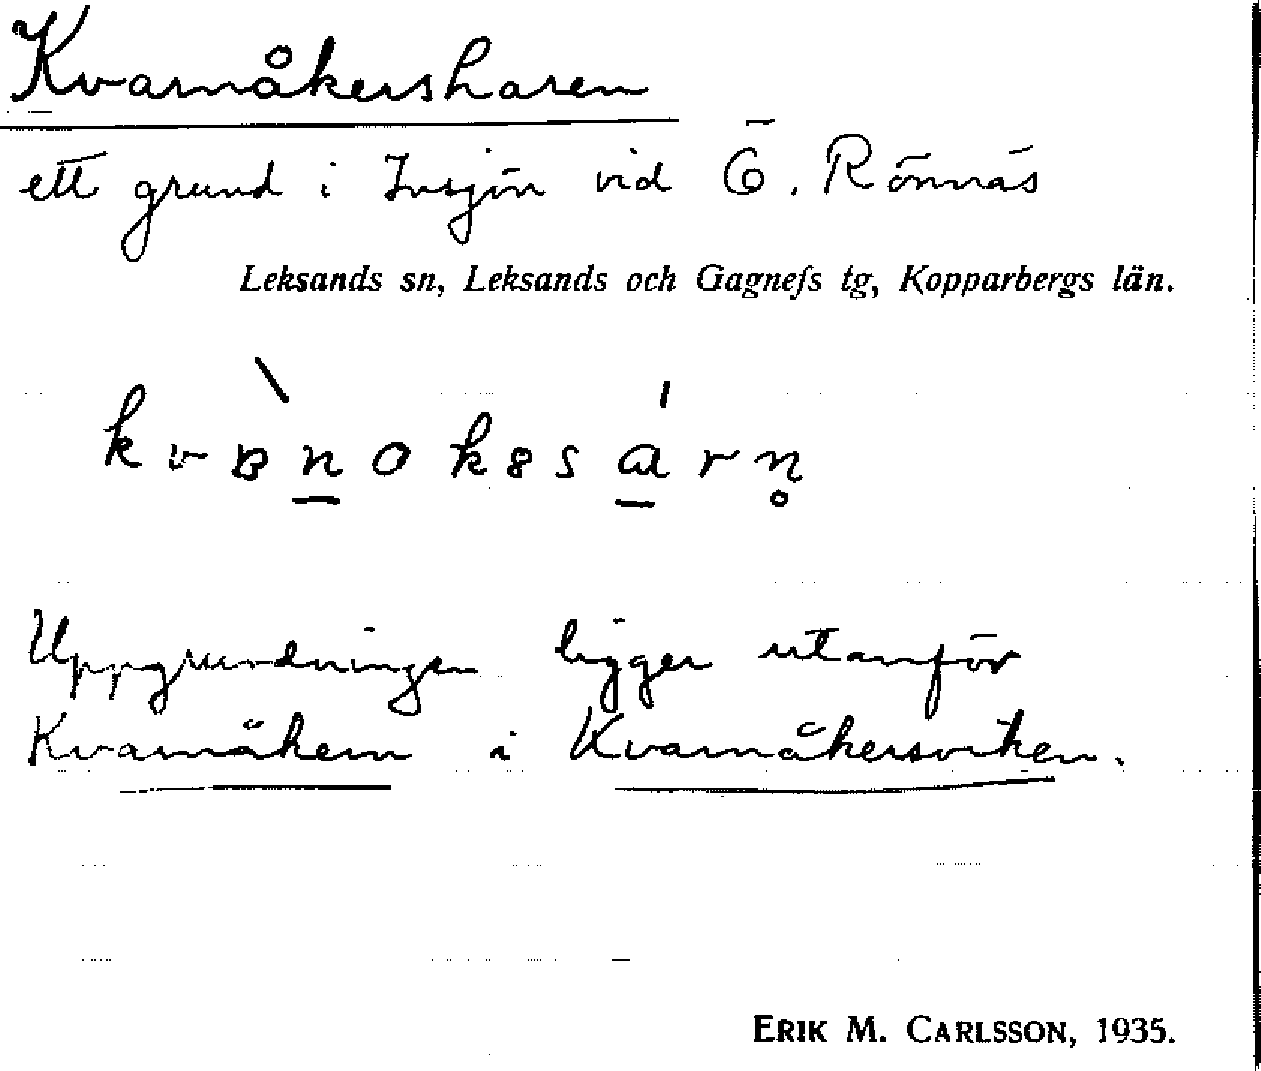 Kvarnåkersharen
ett grund i Insjön vid Ö. Rönnäs
Leksands sn, Leksands och Gagnefs tg, Kopparbergs län.
Uppgrundningen ligger utanför
Kvarnåkern i Kvarnåkersviken.
ERIK M. CARLSSON, 1935.